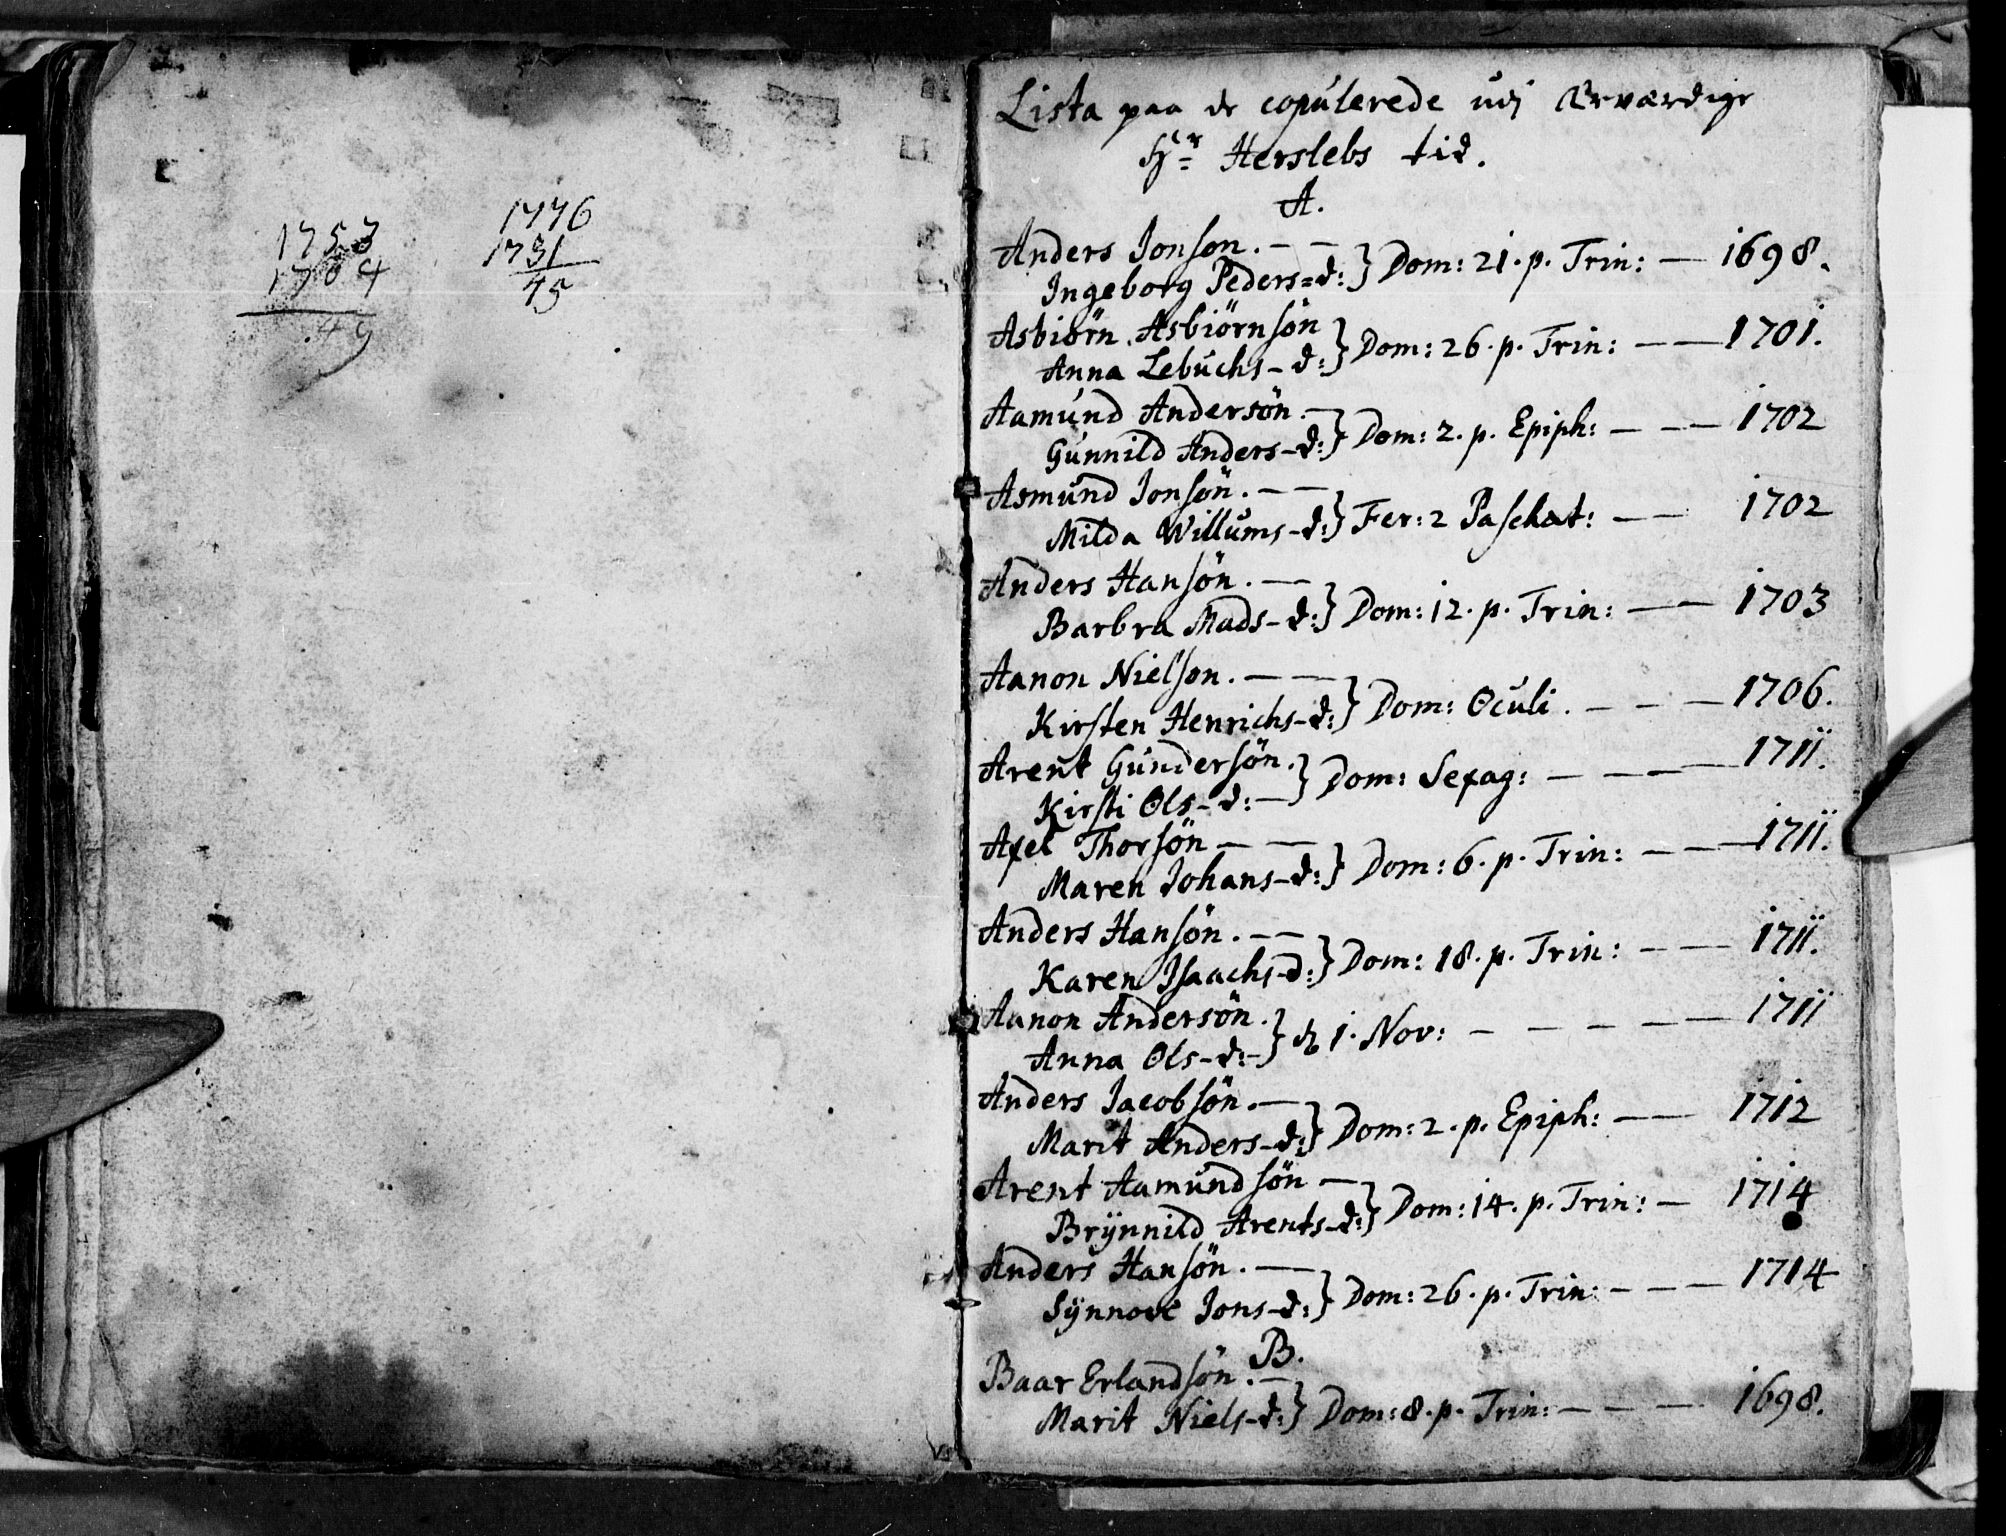 1753
1704
49
1776
1731
45
Lista paa de copulerede udj Ærværdige
Hr Herslebs tid.
A.
Anders Jonsøn. — —
Ingeborg Peders=d: } Dom: 21. p. Trin: — 1698.
Asbiörn Asbiörnsön
Anna Lebuchs-d: } Dom: 26. p. Trin: — — 1701.
Aamund Andersön. —
Gunnild Anders-d: } Dom: 2. p. Epiph: — — — 1702
Asmund Jonsön. — —
Milda Willums-d: } Fer: 2 Paschat: — — 1702
Anders Hansön. —
Barbra Mads-d: } Dom: 12. p. Trin: — — 1703
Aanon Nielson. — —
Kirsten Henrichs-d: } Dom: Oculi. — — — 1706.
Arent Gundersön.
Kirsti Ols-d: — } Dom: Sexag: — — — — 1711.
Axel Thorsön — —
Maren Johans-d: } Dom: 6. p. Trin: — — — 1711.
Anders Hansön. — —
Karen Isaachs-d: } Dom: 18. p. Trin: — — — 1711.
Aanon Andersön.
Anna Ols-d: — } d. 1. Nov: — — — — — 1711
Anders Jacobsön. —
Marit Anders-d: } Dom: 2. p. Epiph: — — 1712
Arent Aamundsön —
Brÿnnild Arents-d: } Dom: 14. p. Trin: — 1714
Anders Hansön. —
Sÿnnove Jons-d: } Dom: 26. p. Trin: — — — 1714
B.
Baar Erlandsön. —
Marit Niels-d: } Dom: 8. p. Trin: — — — 1698.